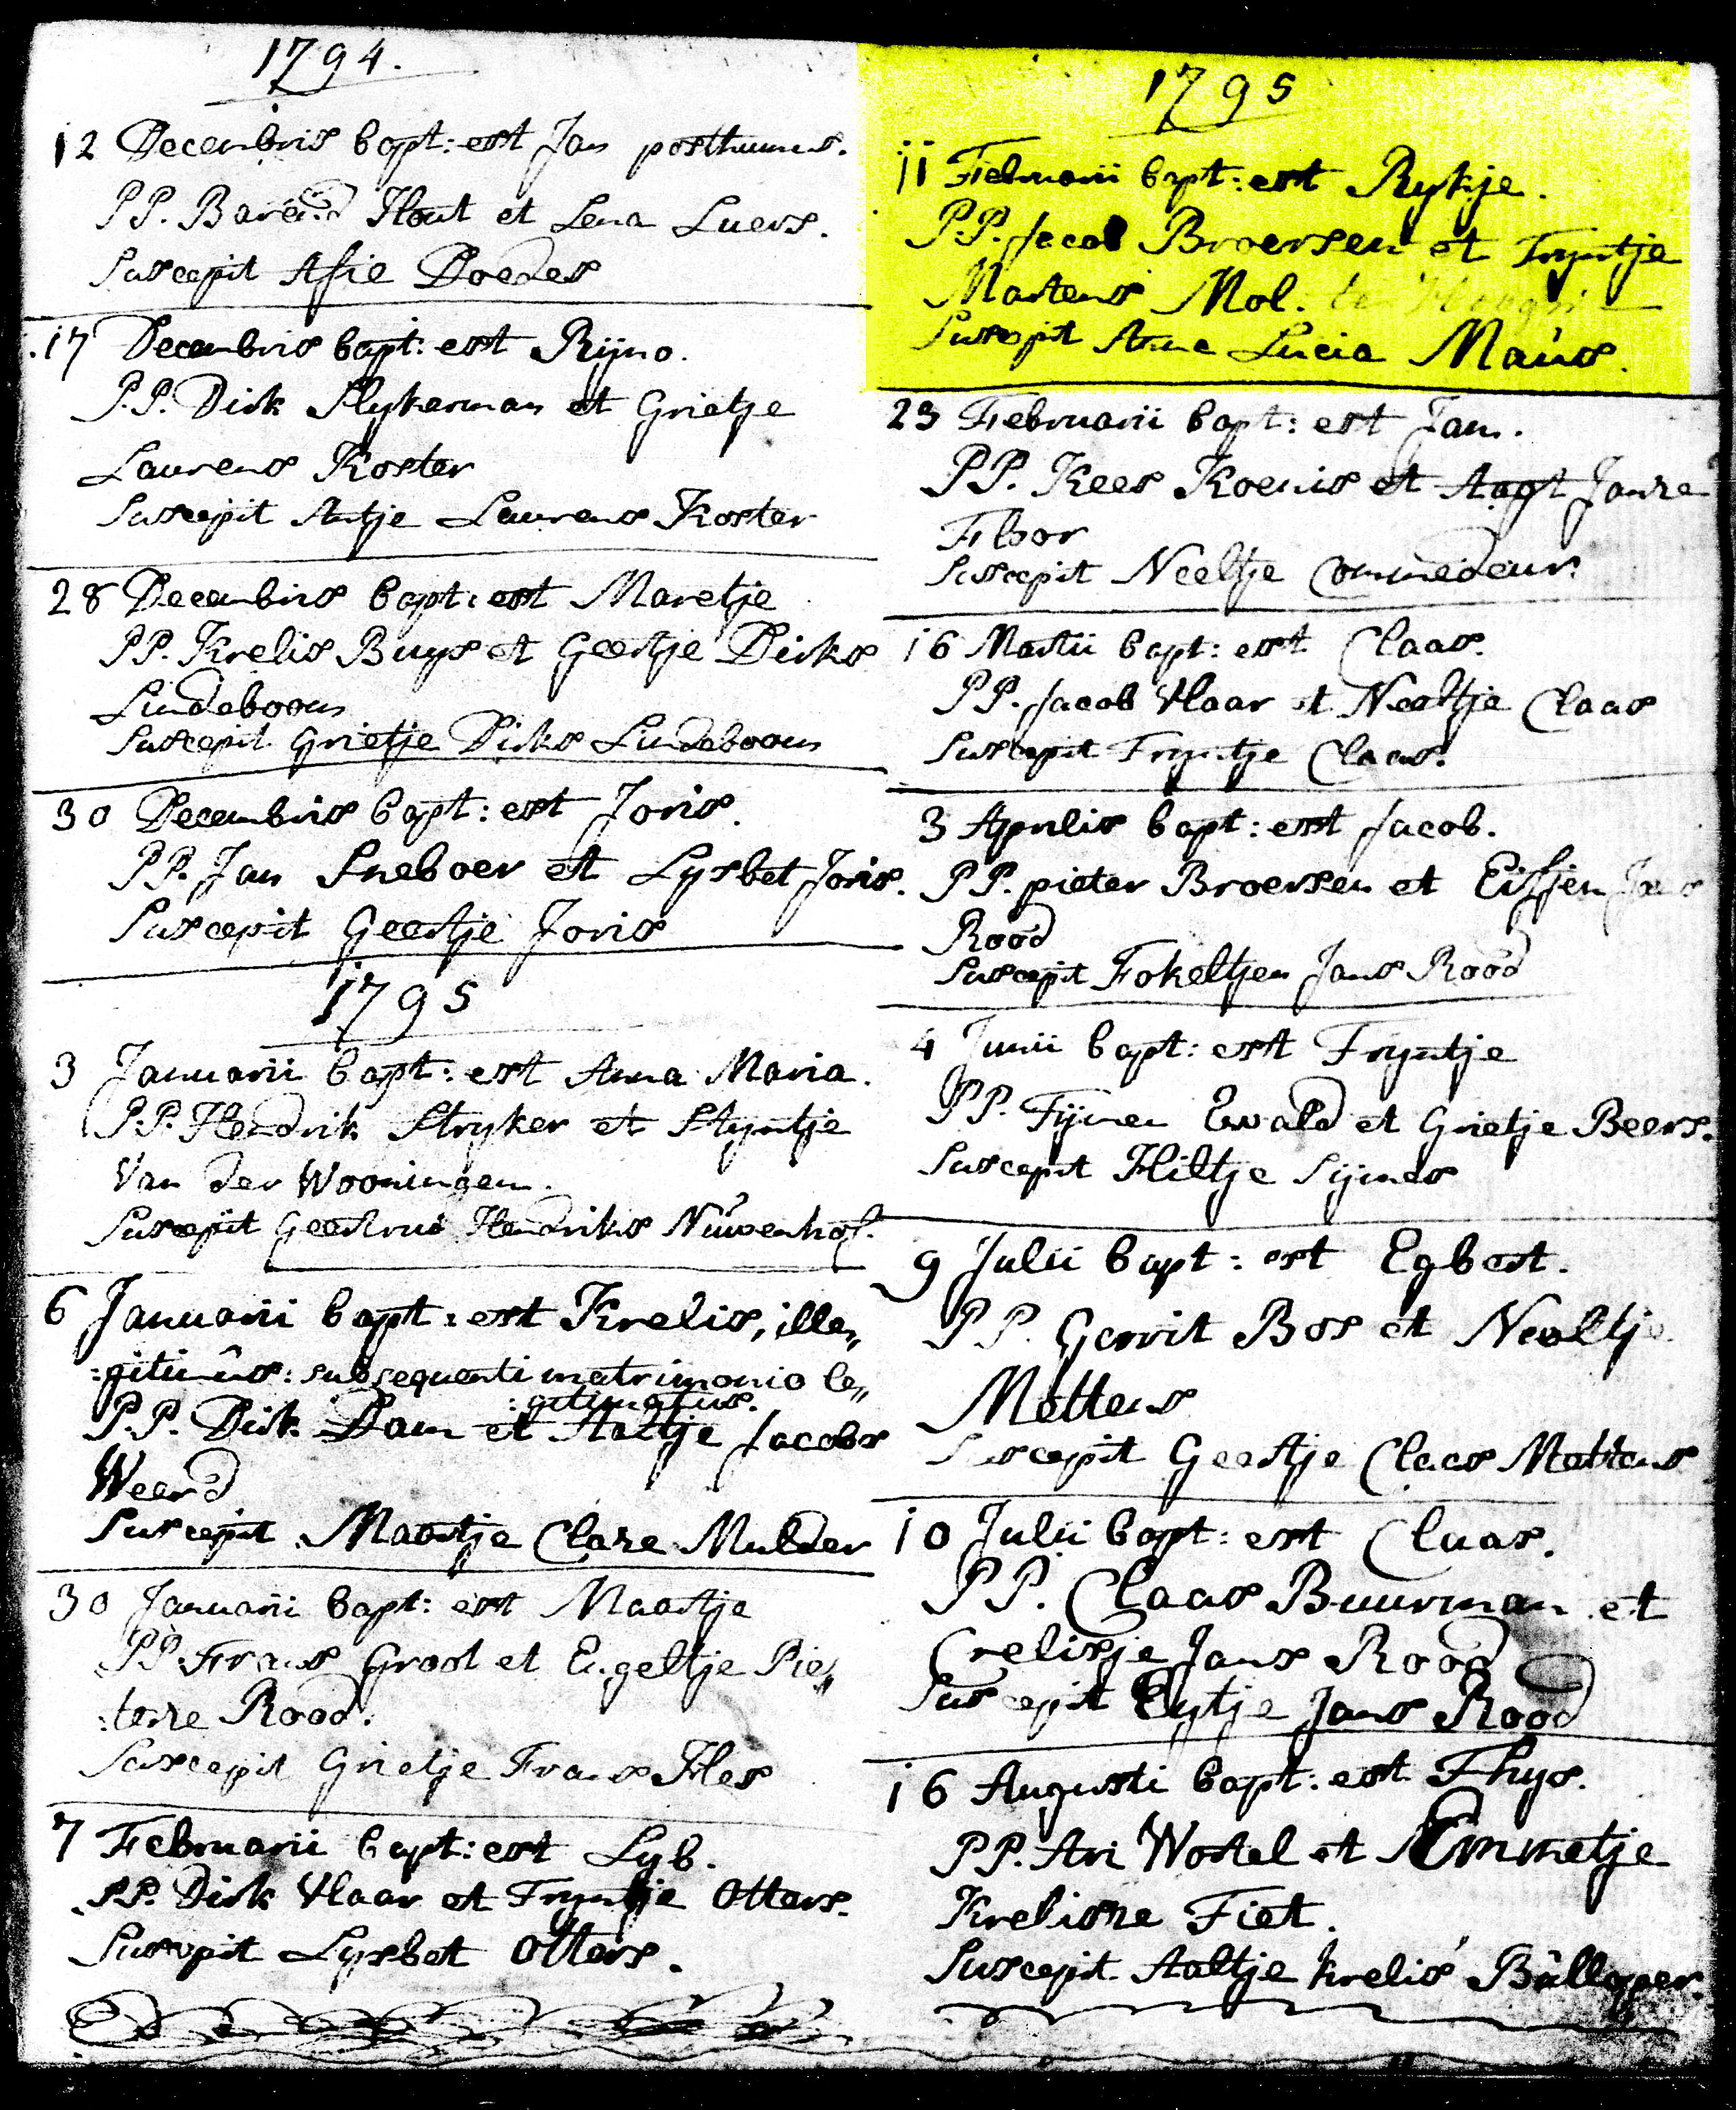 1794.
12 Decembris bapt: est Jan posthumus.
PP. Barend Hout et Lena Luers.
Suscepit Afie Doedes
17 Decembris bapt: est Rijno.
P.P. Dirk Slykerman et Grietje
Laurens Koster
Suscepit Antje Laurens Koster
28 Decembris bapt: est Maretje
PP. Krelis Buys et Geertje Dirks
Lindeboom
Suscepit Grietje Dirks Lindeboom
30 Decembris bapt: est Joris.
PP. Jan Sneboer et Lysbet Joris.
Suscepit Geertje Joris
1795
3 Januarii bapt: est Anna Maria.
P.P. Hendrik Stryker et Styntje
Van der Wooningen.
Suscepit Geertrui Hendriks Niuwenhof.
6 Januarii bapt: est Krelis, ille„
:gitimûs: subsequenti matrimonio le„
:gitimatus.
P.P. Dirk Dam et Aaltje Jacobs
Weerd
Suscepit Maartje Claze Mulder
30 Januarii bapt: est Maartje
PP. Frans Groot et Engeltje Pie„
:terze Rood.
Suscepit Grietje Frans Hes
7 Februarii bapt: est Lyb.
P.P. Dirk Vlaar et Tryntje Otters.
Suscepit Lysbet Otters.
1795
11 Februarii bapt: est Rykje.
P.P. Jacob Broersen et Tryntje
Martens Mol.
Suscepit Anna Lucia Maûs.
23 Februarii bapt: est Jan.
PP. Kees Koenis et Aagt Janze
Floor
Suscepit Neeltje Commedeur.
16 Martii bapt: est Claas.
PP. Jacob Vlaar et Neeltje Claas
Suscepit Tryntje Claas.
3 Aprilis bapt: est Jacob.
PP. pieter Broersen et Eifjen Jans
Rood
Suscepit Fokeltjen Jans Rood
4 Junii bapt: est Tryntje
PP. Tijmen Ewald et Grietje Beers.
Suscepit Hiltje Sijmes
9 Julii bapt: est Egbert.
PP. Gerrit Bos et Neeltje
Mettens
Suscepit Geertje Claas Mettens
10 Julii bapt: est Claas.
PP. Claas Buurman et
Crelisje Jans Rood
Suscepit Eytje Jans Rood
16 Augusti bapt: est Thys.
PP. Ari Wortel et Emmetje
Krelisze Fiet.
Suscepit Aaltje Krelis Bûllooper.